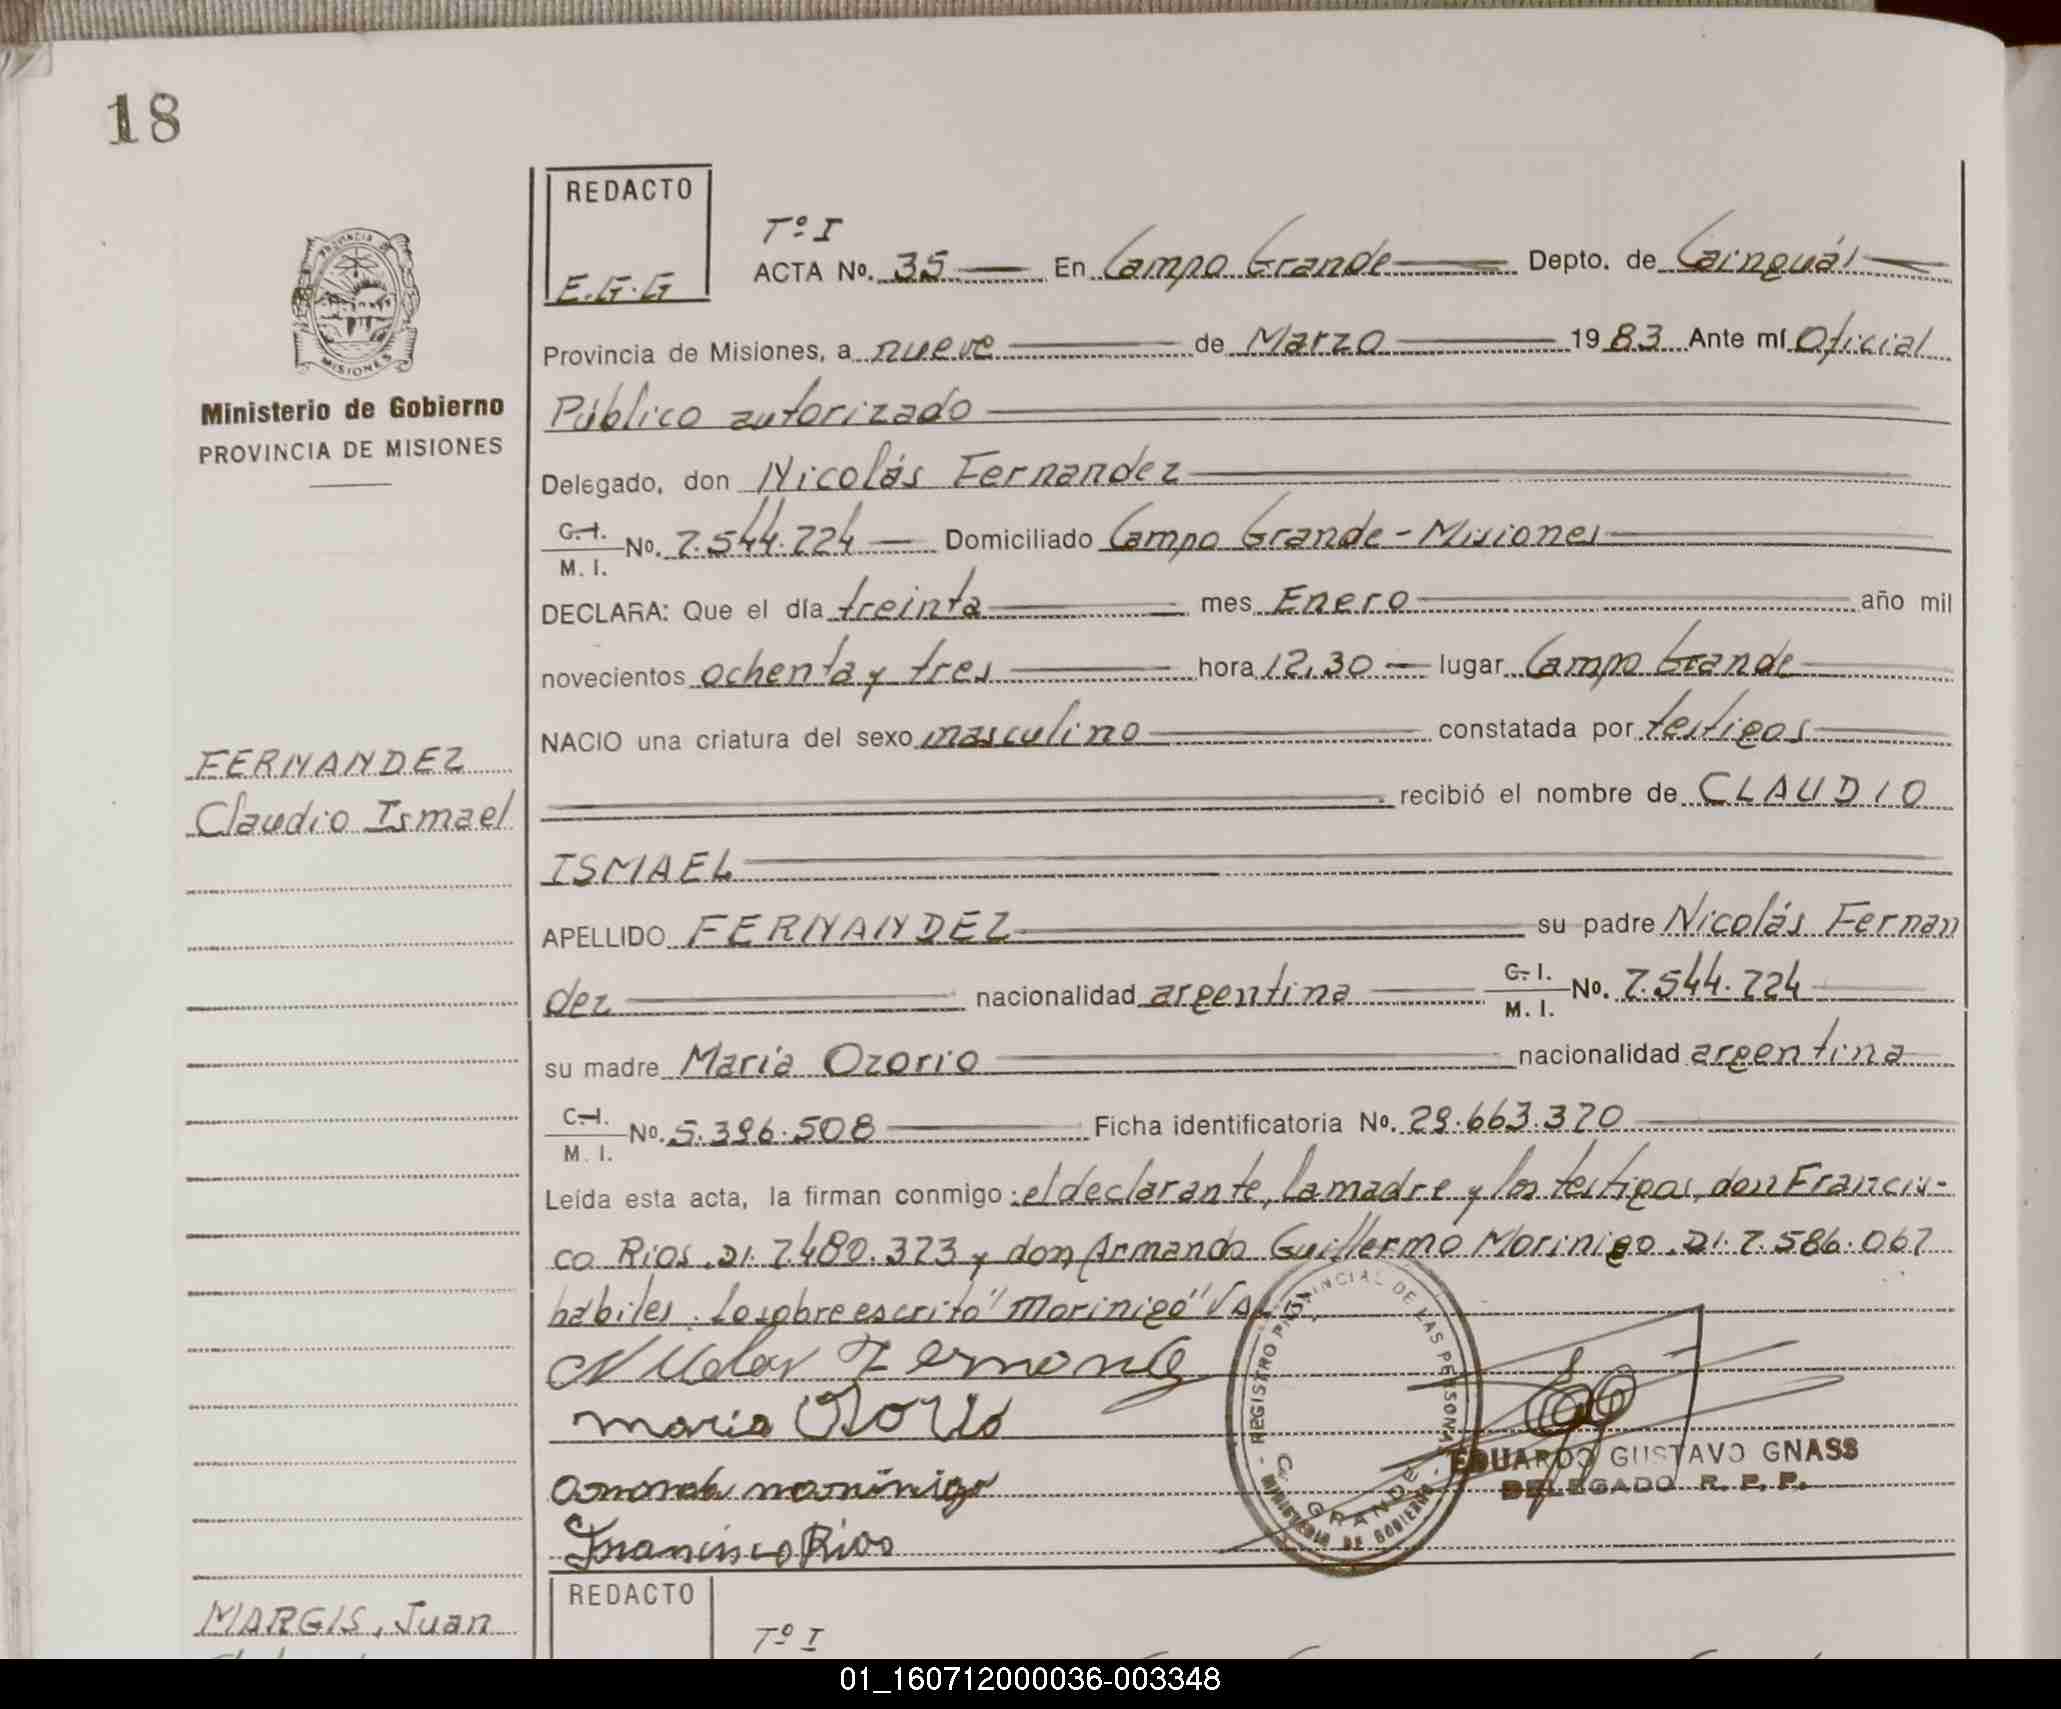 18
REDACTO
E.G.G
Tº I
ACTA No. 35 En Campo Grande Depto. de Cainguás
PROVINCIA DE MISIONES
Ministerio de Gobierno
PROVINCIA DE MISIONES
Provincia de Misiones, a nueve de Marzo 1983 Ante mí Oficial
Público autorizado
Delegado, don Nicolás Fernandez
C.I. M. I. No. 7.544.724 Domiciliado Campo Grande-Misiones
DECLARA: Que el día treinta mes Enero año mil
novecientos ochenta y tres hora 12,30 lugar Campo Grande
NACIO una criatura del sexo masculino constatada por testigos
FERNANDEZ
Claudio Ismael
recibió el nombre de CLAUDIO
ISMAEL
APELLIDO FERNANDEZ su padre Nicolás Fernan
dez nacionalidad argentina C.I. M. I. No. 7.544.724
su madre Maria Ozorio nacionalidad argentina
C.I. M. I. No. 5.396.508 Ficha identificatoria No. 29.663.370
Leída esta acta, la firman conmigo: el declarante, la madre y los testigos, don Francis-
co Rios, DI. 7.480.373 y don Armando Guillermo Morinigo. DI. 7.586.067
hábiles. Lo sobre escrito "Morinigo" Vale
Nicolas Fernande
Maria Ozorio
Armando morinigo
Francisco Rios
REGISTRO PROVINCIAL DE LAS PERSONAS
C. GRANDE
MINISTERIO DE GOBIERNO
EDUARDO GUSTAVO GNASS
DELEGADO R. P. P.
REDACTO
Tº I
MARGIS, Juan
01_160712000036-003348